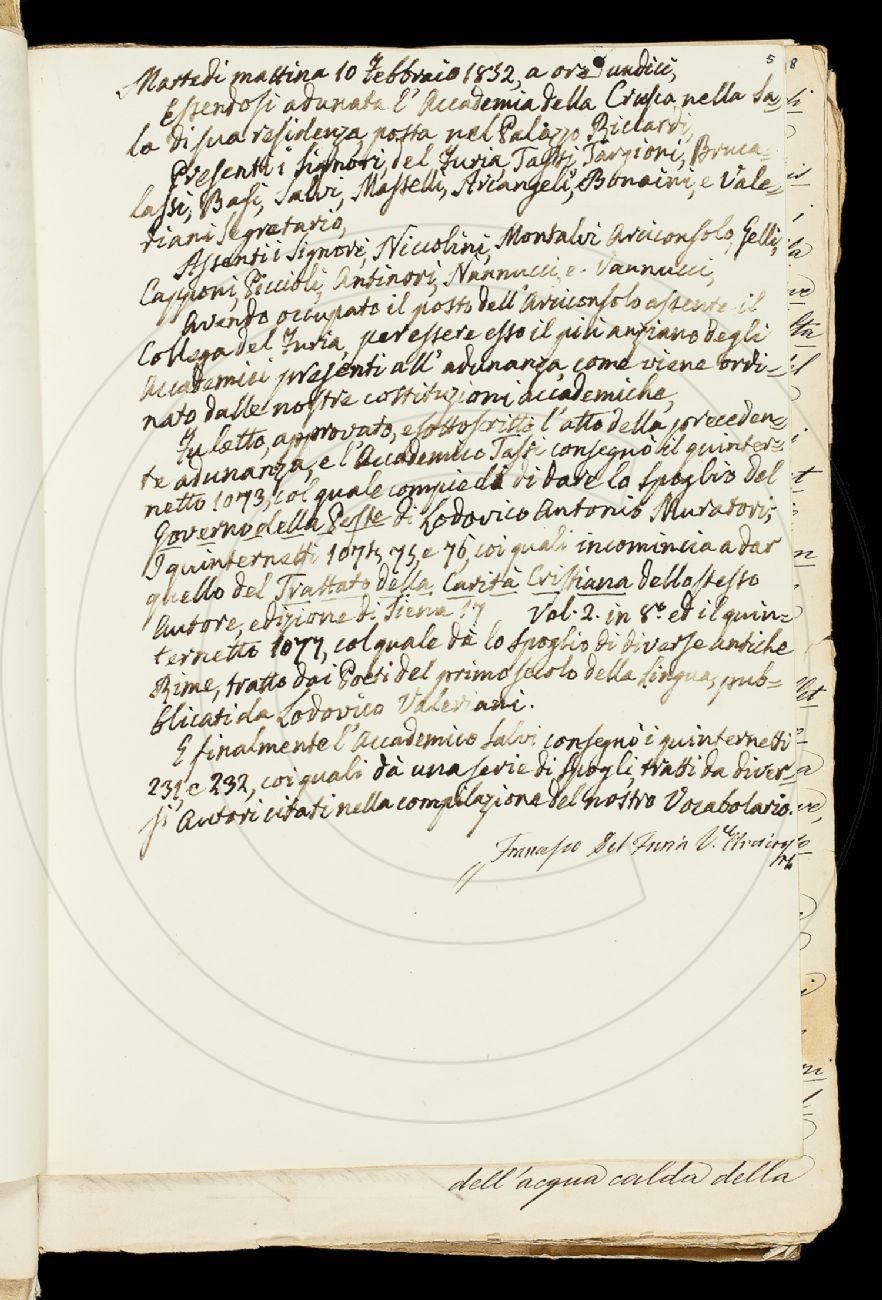 5 8
Martedi mattina 10 Febbraio 1832, a ore undici,
Essendosi adunata l'Accademia della Crusca nella Sa=
la di sua residenza, posta nel Palazzo Riccardi,
Presenti i Signori, del Furia, Tassi, Targioni, Bruca=
lassi, Basi, Salvi, Masselli, Arcangeli, Bonaini, e Vale=
riani Segretario,
Assenti i Signori, Niccolini, Montalvi Arciconsolo, Gelli,
Capponi, Piccioli, Antinori, Nannucci, e Vannucci,
Avendo occupato il posto dell'Arciconsolo assente il
Collega del Furia, per essere esso il più anziano degli
Accademici presenti all'adunanza, come viene ordi=
nato dalle nostre costituzioni accademiche,
Fu letto, approvato, e sottoscritto l'atto della preceden=
te adunanza, e l'Accademico Tassi consegnò il quinter=
netto 1073, col quale compie di dare lo Spoglio del
Governo della Peste di Lodovico Antonio Muratori;
I quinternetti 1074, 75, e 76, coi quali incomincia a dar
quello del Trattato della Carità Cristiana dello stesso
Autore, edizione di Siena 17 Vol. 2. in 8.° ed il quin=
ternetto 1077, col quale dà lo Spoglio di diverse antiche
Rime, tratto dai Poeti del primo secolo della Lingua, pub=
blicati da Lodovico Valeriani.
E finalmente l'Accademico Salvi consegnò i quinternetti
231, e 232, coi quali dà una serie di Spogli tratti da diver=
si Autori citati nella compilazione del nostro Vocabolario.
Francesco Del Furia V.e Arcicons
dell'acqua calda della